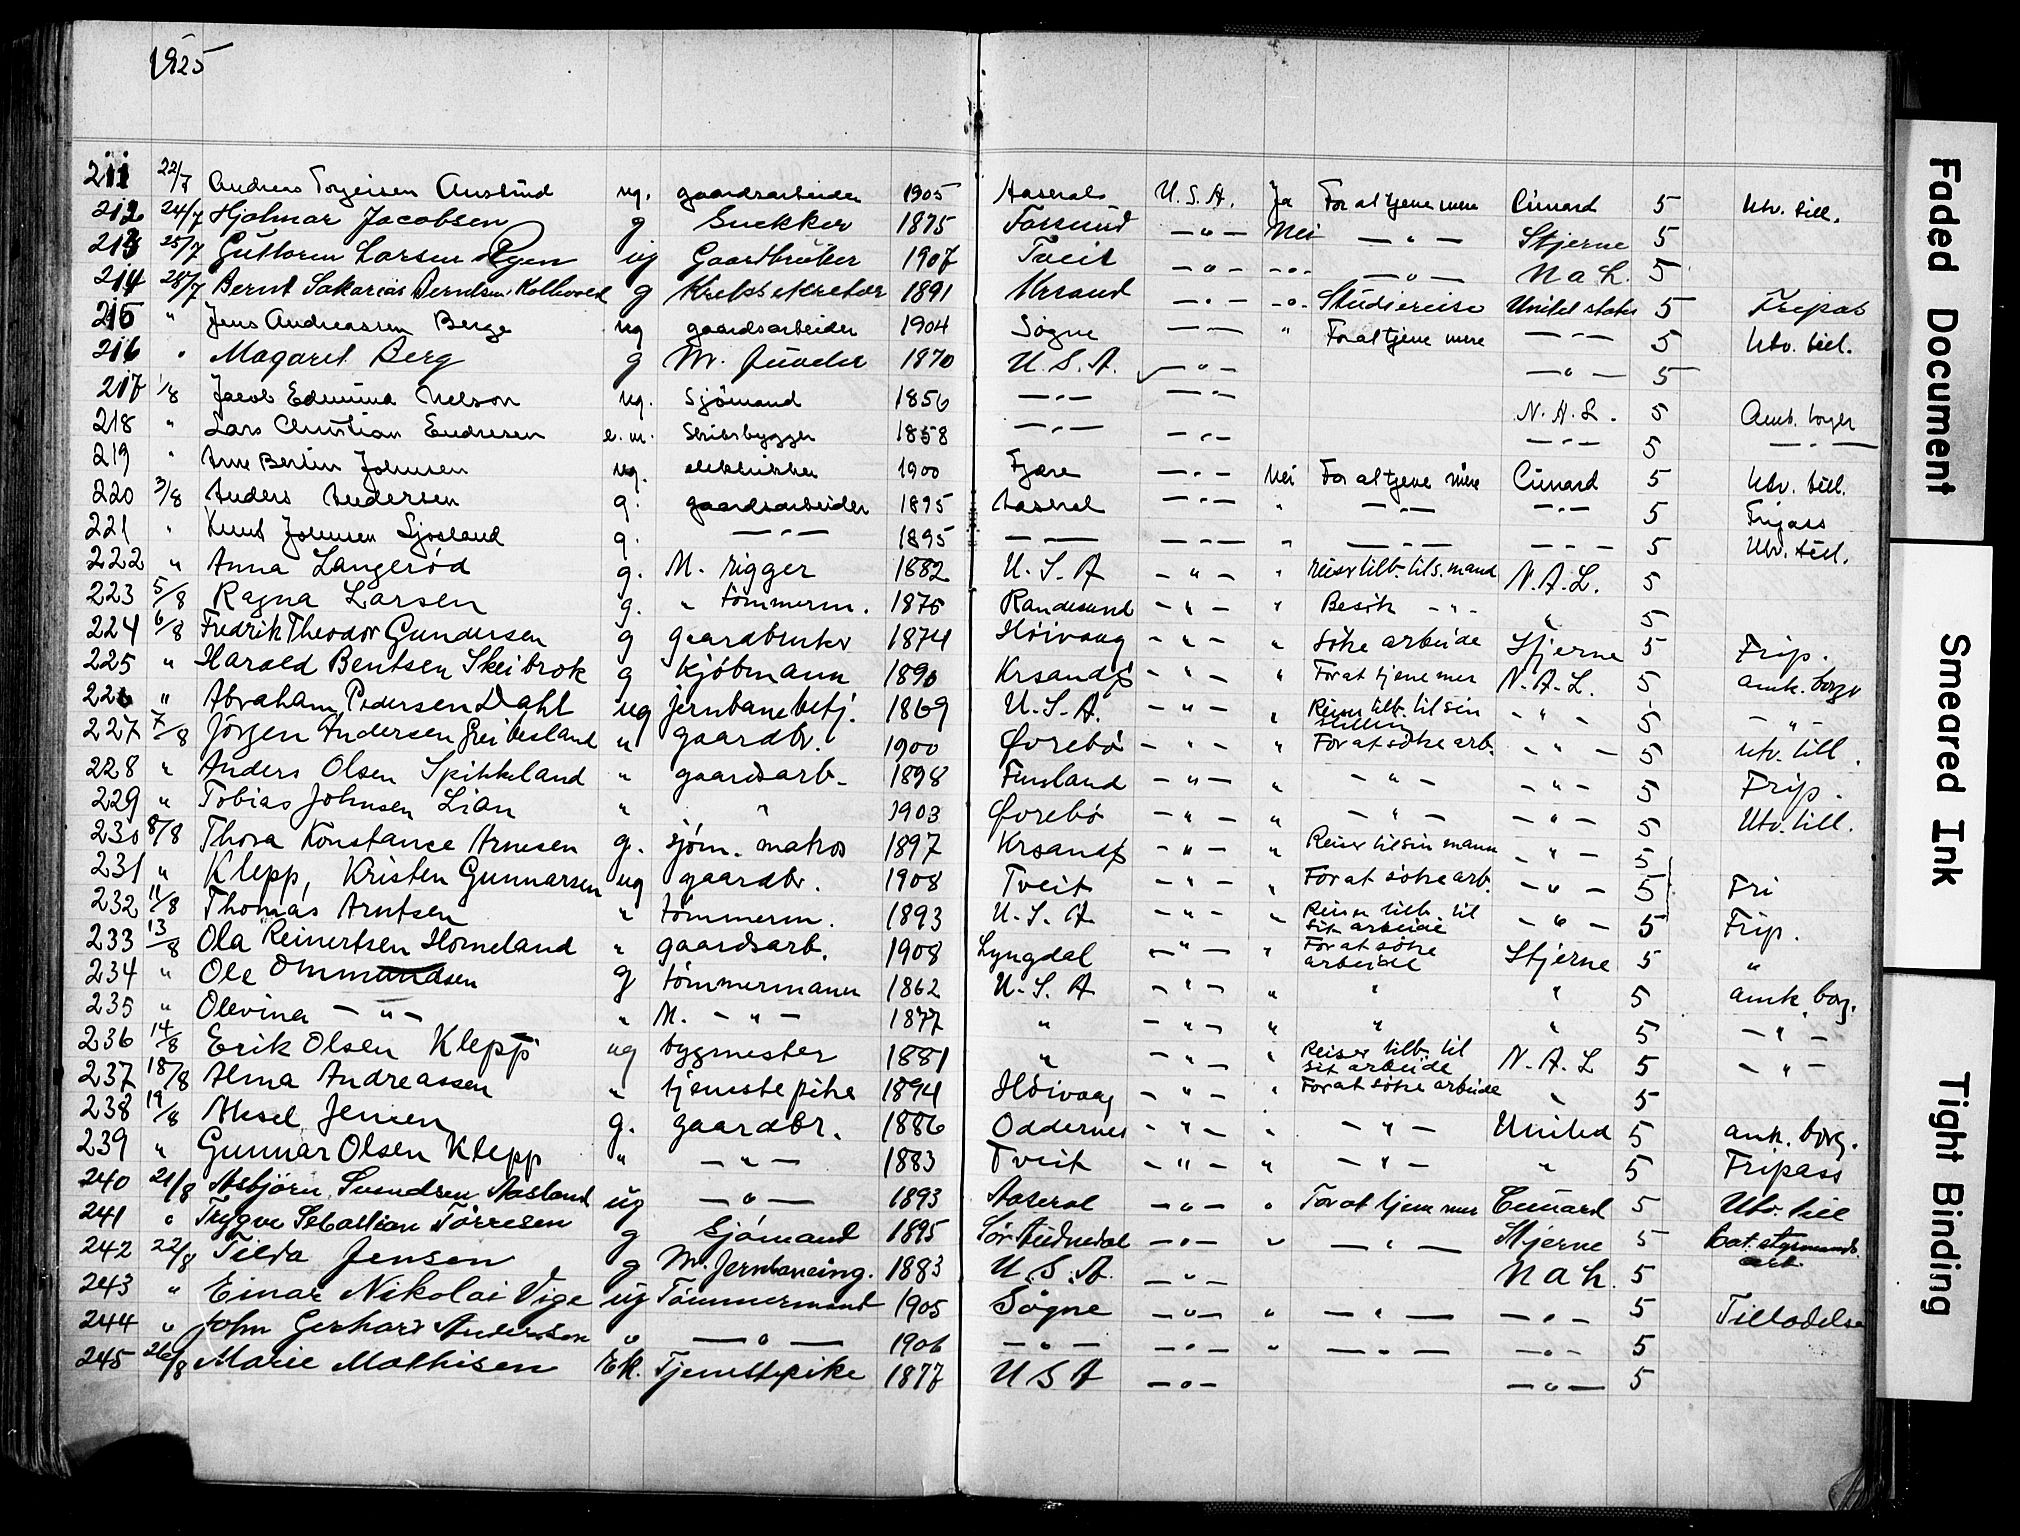 1925
211 22/7 Andreas Torjeisen Austrud ug. gaardsarbeider 1905 Aaseral U.S.A. Ja For at tjene mere Cunard 5 Utv. till.
212 24/7 Hjalmar Jacobsen g Snekker 1875 Farsund —"— Nei —"— Stjerne 5
213 25/7 Guttorm Larsen Ryen ug Gaardbruker 1907 Tveit —"— -"- —"— N a L. 5
214 28/7 Bernt Sakarias Berntsen Kolhoved g Kretssekretær 1891 Krsand -"- -"- Studiereise United states 5 Fripas
215 " Jens Andreassen Berge ug gaardsarbeider 1904 Søgne —"— " For at tjene mere —"— 5 Utv. till.
216 " Magaret Berg g M. 1870 U.S.A. —"— —"— 5
217 1/8 Jacob Edmund Nelson ug. Sjømand 1856 —"— —"— N.A.L. 5 Amk. borger
218 " Lars Christian Endresen e.m. Skibsbygger 1858 —"— —"— —"— 5 —"—
219 " Arne Berlin Johnsen ug. elektriker 1900 Fjære —"— Nei For at tjene mere Cunard 5 Utv. till.
220 3/8 Anders Andersen g. gaardsarbeider 1895 Aaseral —"— " —"— —"— 5 Fripass
221 " Knut Johnsen Ljosland g. —"— 1895 —"— —"— " —"— —"— 5 Utv. till.
222 " Anna Langerød g. M. rigger 1882 U.S.A —"— " reiser tilb. til s. mand N.A.L. 5
223 5/8 Ragna Larsen g. " tømmerm. 1876 Randesund —"— " Besøk -"- " 5
224 6/8 Fredrik Theodor Gundersen g gaardbruker 1874 Høivaag —"— " søke arbeide Stjerne 5 Frip.
225 " Harald Bentsen Skeibrok g kjøbmann 1890 Krsands —"— " For at tjene mer N.A.L. 5 amk. borger
226 " Abraham Pedersen Dahl ug jernbanebetj. 1869 U.S.A. —"— " Reiser tilb. til sin stilling —"— 5 —"—
227 7/8 Jörgen Andersen Greibesland " gaardbr. 1900 Øvrebø —"— " For at søke arb. —"— 5 utv. till.
228 " Anders Olsen Spikkeland " gaardsarb. 1898 Finsland —"— " —"— —"— 5 Frip.
229 " Tobias Johnsen Lian " " 1903 Øvrebø —"— " —"— —"— 5 Utv. till.
230 8/8 Thora Konstance Arnesen g. sjøm. matros 1897 Krsands —"— " Reiser til sin mann —"— 5
231 " Klepp, Kristen Gunnarsen ug gaardbr. 1908 Tveit —"— " For at søke arb. —"— 5 Fri
232 11/8 Thomas Arntsen " tømmerm. 1893 U.S.A —"— " Reiser tilb. til sit arbeide —"— 5 Frip.
233 13/8 Ola Reinertsen Homeland " gaardsarb. 1908 Lyngdal —"— " For at søke arbeide Stjerne 5 "
234 " Ole Ommundsen g tømmermann 1862 U.S.A —"— " " " 5 amk. borg.
235 " Olevina —"— " M. —"— 1877 " " " " " 5 —"—
236 14/8 Erik Olsen Klepp ug bygmester 1881 " —"— " Reiser tilb. til sit arbeide N.A.L 5 —"—
237 18/8 Alma Andreassen " tjenstepike 1894 Høivaag —"— " For at søke arbeide " 5
238 19/8 Aksel Jensen g. gaardbr. 1886 Oddernes —"— " —"— United 5 amk. borg.
239 " Gunnar Olsen Klepp " —"— 1883 Tveit —"— " —"— " 5 Fripass
240 21/8 Asbjørn Svendsen Aasland ug —"— 1893 Aaseral —"— " For at tjene mer Cunard 5 Utv. till
241 " Trygve Sebastian Tørresen g Sjømand 1895 Sør Audnedal —"— " —"— Stjerne 5 styrmands
242 22/8 Tilda Jensen g M. Jernbaneing. 1883 U.S.A. —"— N a L. 5
243 " Einar Nikolai Vige ug Tømmermand 1905 Søgne —"— " —"— —"— 5 Tilladelse
244 " John Gerhard Andersen " —"— 1906 —"— —"— " —"— —"— 5
245 26/8 Marie Mathisen Ek. Tjenstepike 1877 U S A —"— —"— 5
Faded Document
Smeared Ink
Tight Binding